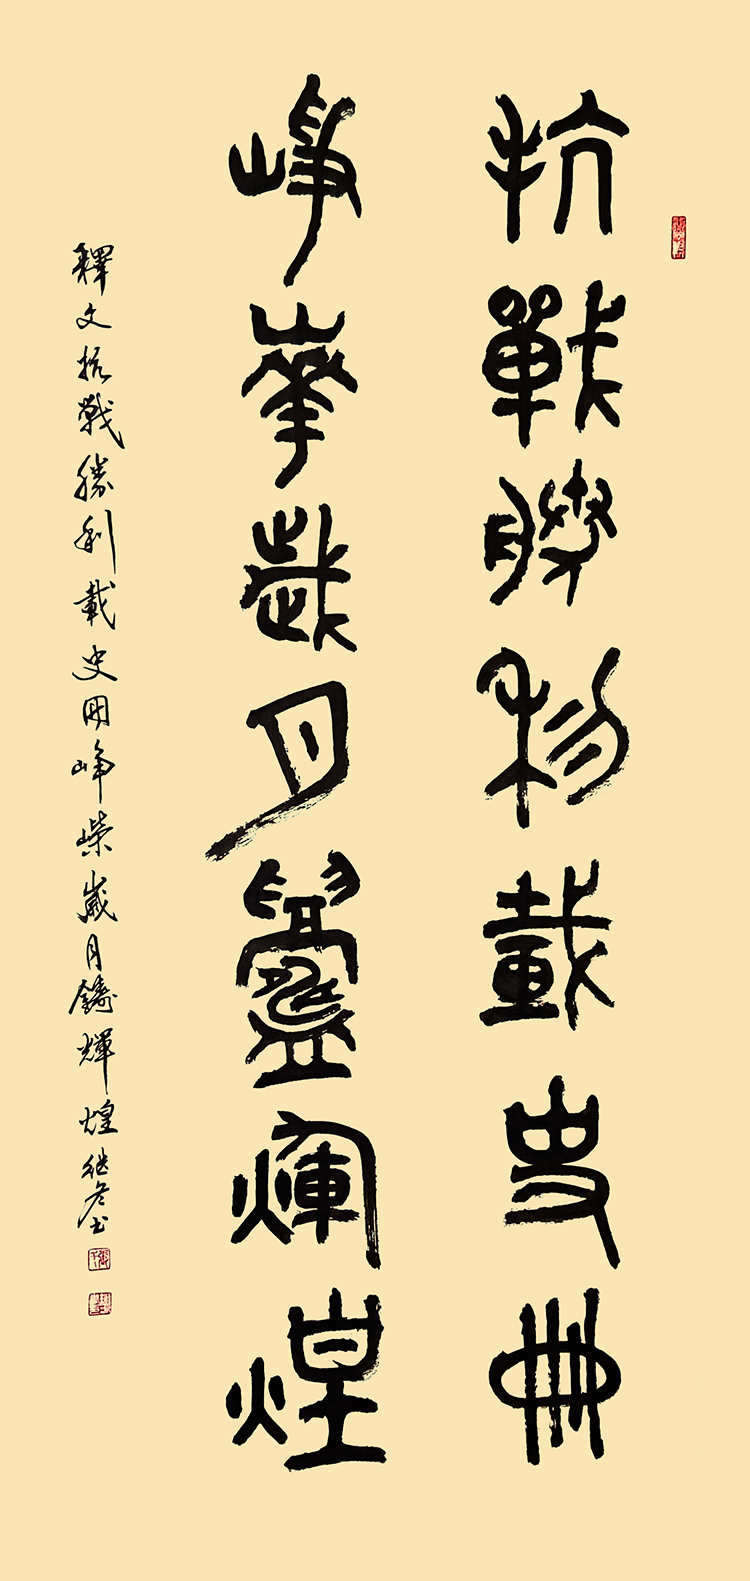 抗戰勝利載史冊
崢嶸歲月鑄輝煌
釋文抗戰勝利載史冊崢嶸歲月鑄輝煌继彦书